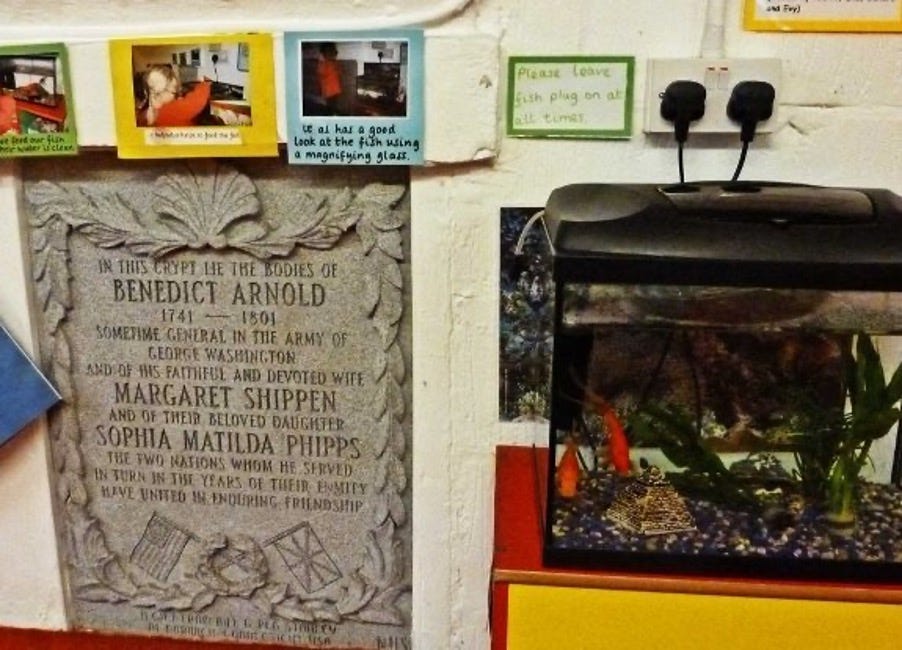 feed our fish
their water is clean.
to feed the fish
It al has a good
look at the fish using
a magnifying glass.
Please leave
fish plug on at
all times.
and Evy)
IN THIS CRYPT LIE THE BODIES OF
BENEDICT ARNOLD
1741 — 1801
SOMETIME GENERAL IN THE ARMY OF
GEORGE WASHINGTON
AND OF HIS FAITHFUL AND DEVOTED WIFE
MARGARET SHIPPEN
AND OF THEIR BELOVED DAUGHTER
SOPHIA MATILDA PHIPPS
THE TWO NATIONS WHOM HE SERVED
IN TURN IN THE YEARS OF THEIR ENMITY
HAVE UNITED IN ENDURING FRIENDSHIP
USA